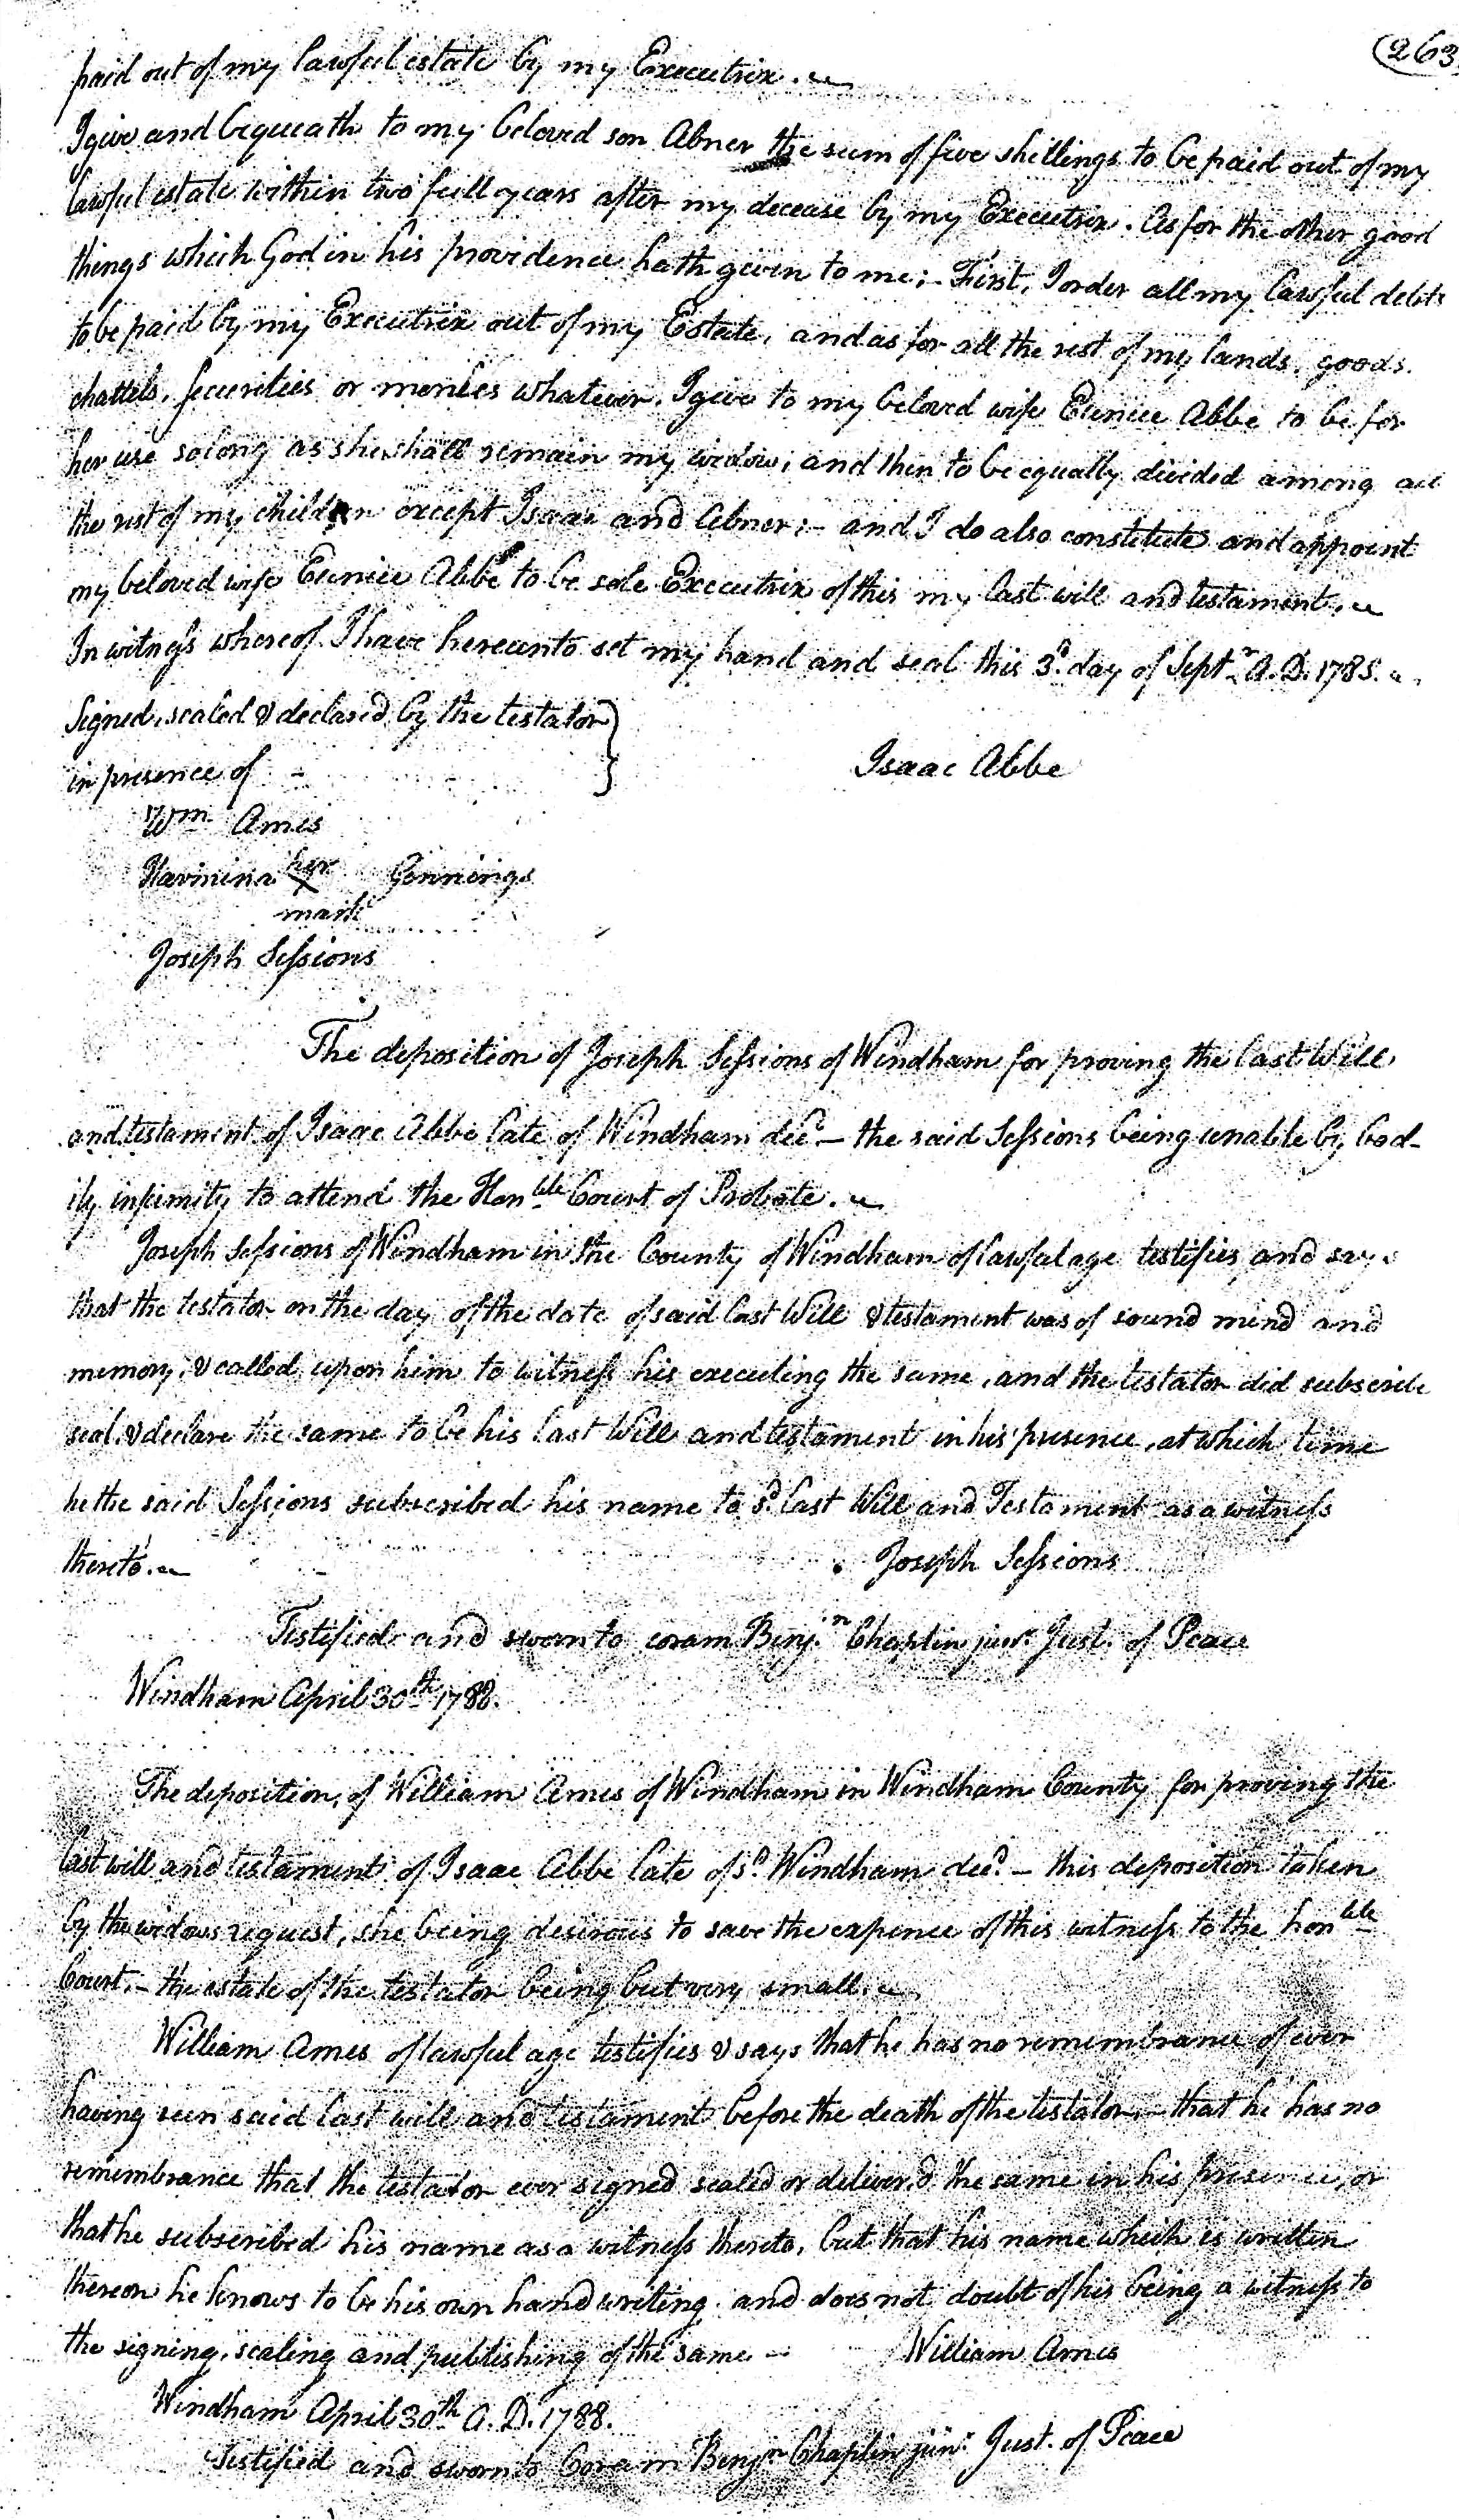 263
paid out of my lawful estate by my Executrix.
I give and bequeath to my beloved son Abner the sum of five shillings to be paid out of my
lawful estate within two full years after my decease by my Executrix. As for the other good
things which God in his providence hath given to me; - First, I order all my lawful debts
to be paid by my Executrix out of my Estate, and as for all the rest of my lands, goods,
chattels, securities or monies whatever. I give to my beloved wife Eunice Abbe to be for
her use so long as she shall remain my widow; and then to be equally divided among all
the rest of my children except Isaac and Abner; - and I do also constitute and appoint
my beloved wife Eunice Abbe to be sole Executrix of this my last will and testament.
In witness whereof I have hereunto set my hand and seal this 3d. day of Septr. A.D. 1785.
Signed, sealed & declared by the testator
in presence of -
Isaac Abbe
Wm. Ames
her
x Jennings
mark
Joseph Sessions
The deposition of Joseph Sessions of Windham for proving the last Will
and testament of Isaac Abbe late of Windham decd. - the said Sessions being unable by bod-
ily infirmity to attend the Honble Court of Probate.
Joseph Sessions of Windham in the County of Windham of lawful age testifies and says
that the testator on the day of the date of said last Will & testament was of sound mind and
memory, & called upon him to witness his executing the same, and the testator did subscribe
seal, & declare the same to be his last Will and testament in his presence, at which time
he the said Sessions subscribed his name to sd. last Will and Testament as a witness
thereto.
Joseph Sessions
Testified and sworn to coram Benjn. Chaplin junr. Just. of Peace
Windham April 30th 1788.
The deposition, of William Ames of Windham in Windham County for proving the
last will and testament of Isaac Abbe late of sd. Windham decd. - this deposition taken
by the widows request, she being desirous to save the expence of this witness to the honble
Court. - the estate of the testator being but very small.
William Ames of lawful age testifies & says that he has no remembrance of ever
having seen said last will and testament before the death of the testator, - that he has no
remembrance that the testator ever signed sealed or deliver'd the same in his presence, or
that he subscribed his name as a witness thereto, but that his name which is written
thereon he knows to be his own hand writing and does not doubt of his being a witness to
the signing, sealing and publishing of the same -
William Ames
Windham April 30th A.D. 1788.
Testified and sworn to Coram Benjn Chaplin junr. Just. of Peace